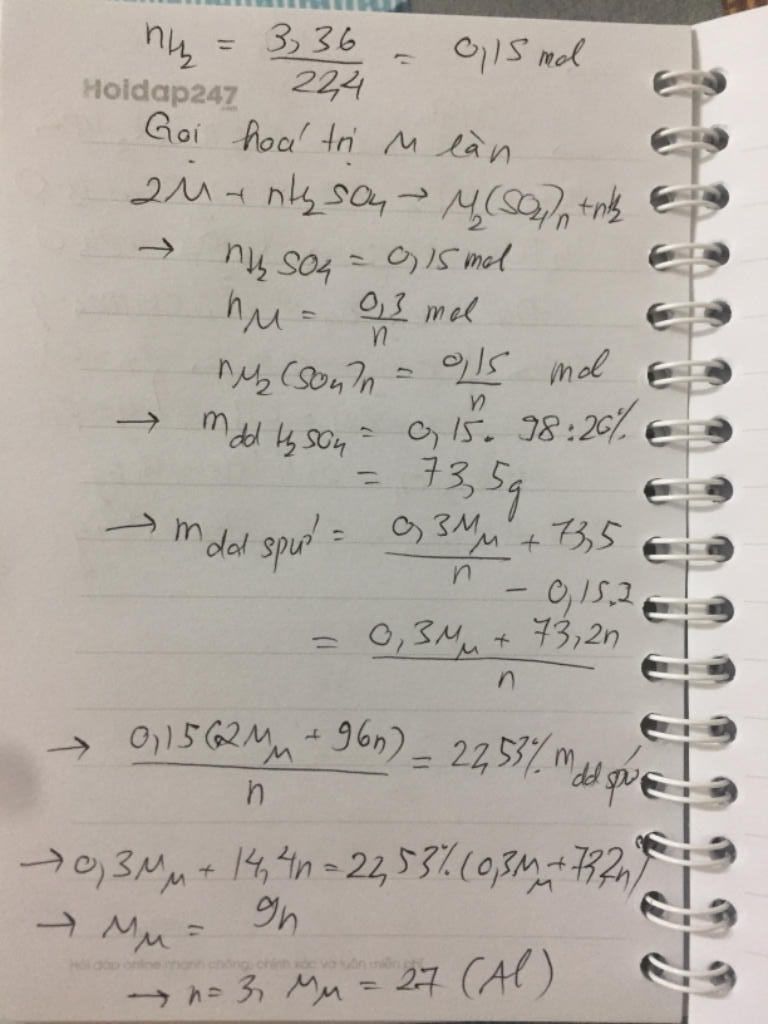 nH₂ = 3,36 / 22,4 = 0,15 mol
Hoidap247
.com
Gọi hoá trị M là n
2M + nH₂SO₄ → M₂(SO₄)n + nH₂
→ nH₂SO₄ = 0,15 mol
nM = 0,3 / n mol
nM₂(SO₄)n = 0,15 / n mol
→ mdd H₂SO₄ = 0,15 . 98 : 20%
= 73,5g
→ mdd spứ = 0,3Mᴍ / n + 73,5
- 0,15.2
= 0,3Mᴍ + 73,2n / n
→ 0,15(2Mᴍ + 96n) / n = 22,53% mdd spứ
→ 0,3Mᴍ + 14,4n = 22,53% (0,3Mᴍ + 73,2n)
→ Mᴍ = 9n
Hỏi đáp online nhanh chóng, chính xác và luôn miễn phí
→ n = 3, Mᴍ = 27 (Al)